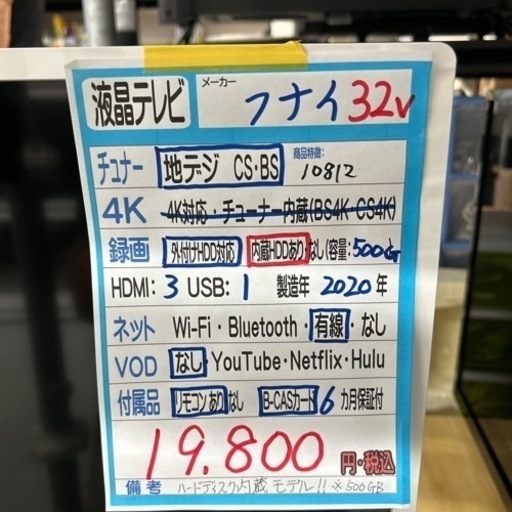 液晶テレビ メーカー フナイ 32v
チュナー 地デジ CS・BS 商品特徴: 10812
4K 4K対応・チューナー内蔵(BS4K・CS4K)
録画 外付けHDD対応 内蔵HDDあり・なし(容量:500G
HDMI: 3 USB: 1 製造年 2020年
ネット Wi-Fi・Bluetooth・有線・なし
VOD なし YouTube・Netflix・Hulu
付属品 リモコンあり なし B-CASカード 6カ月保証付
19.800 円・税込
備考 ハードディスク内蔵モデル!! ※500GB